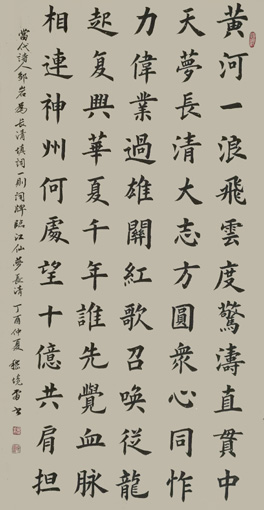 黃河一浪飛雲度驚濤直貫中
天夢長清大志方圓衆心同怍
力偉業過雄關紅歌召喚從龍
起复興華夏千年誰先覺血脉
相連神州何處望十億共肩担
當代诗人邹岩為長清填詞一則詞牌臨江仙夢長清丁酉仲夏